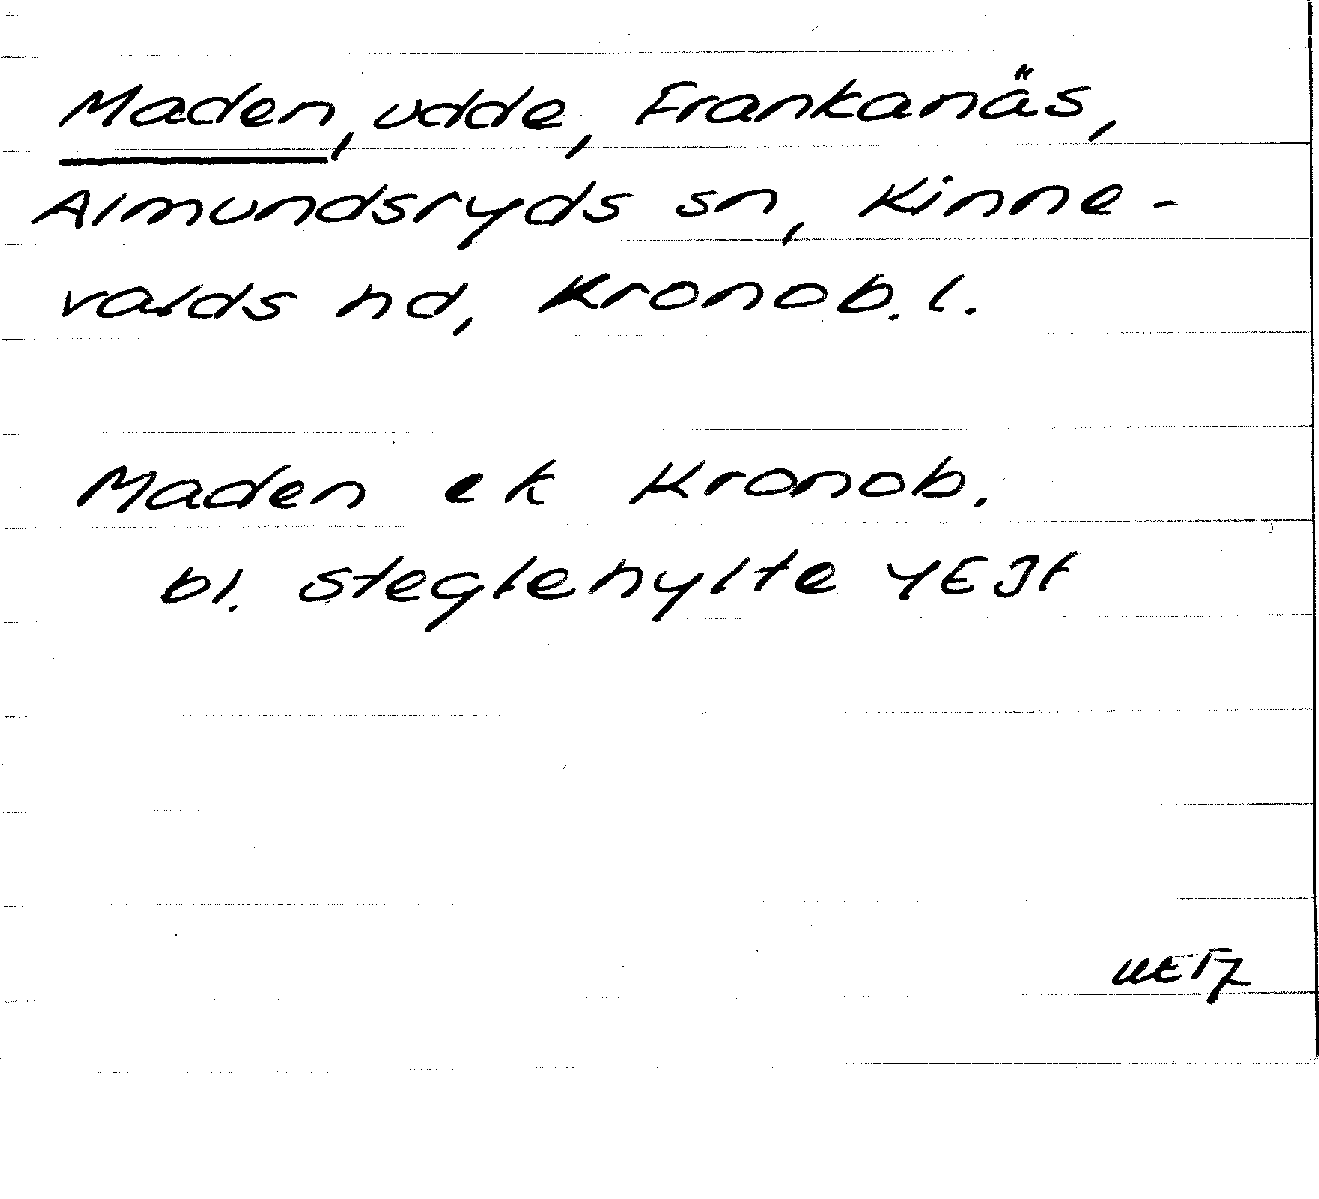 Maden, udde, Frankanäs,
Almundsryds sn, Kinne-
valds hd, Kronob. l.

Maden ek Kronob.
bl. Steglehylte 4E Jf